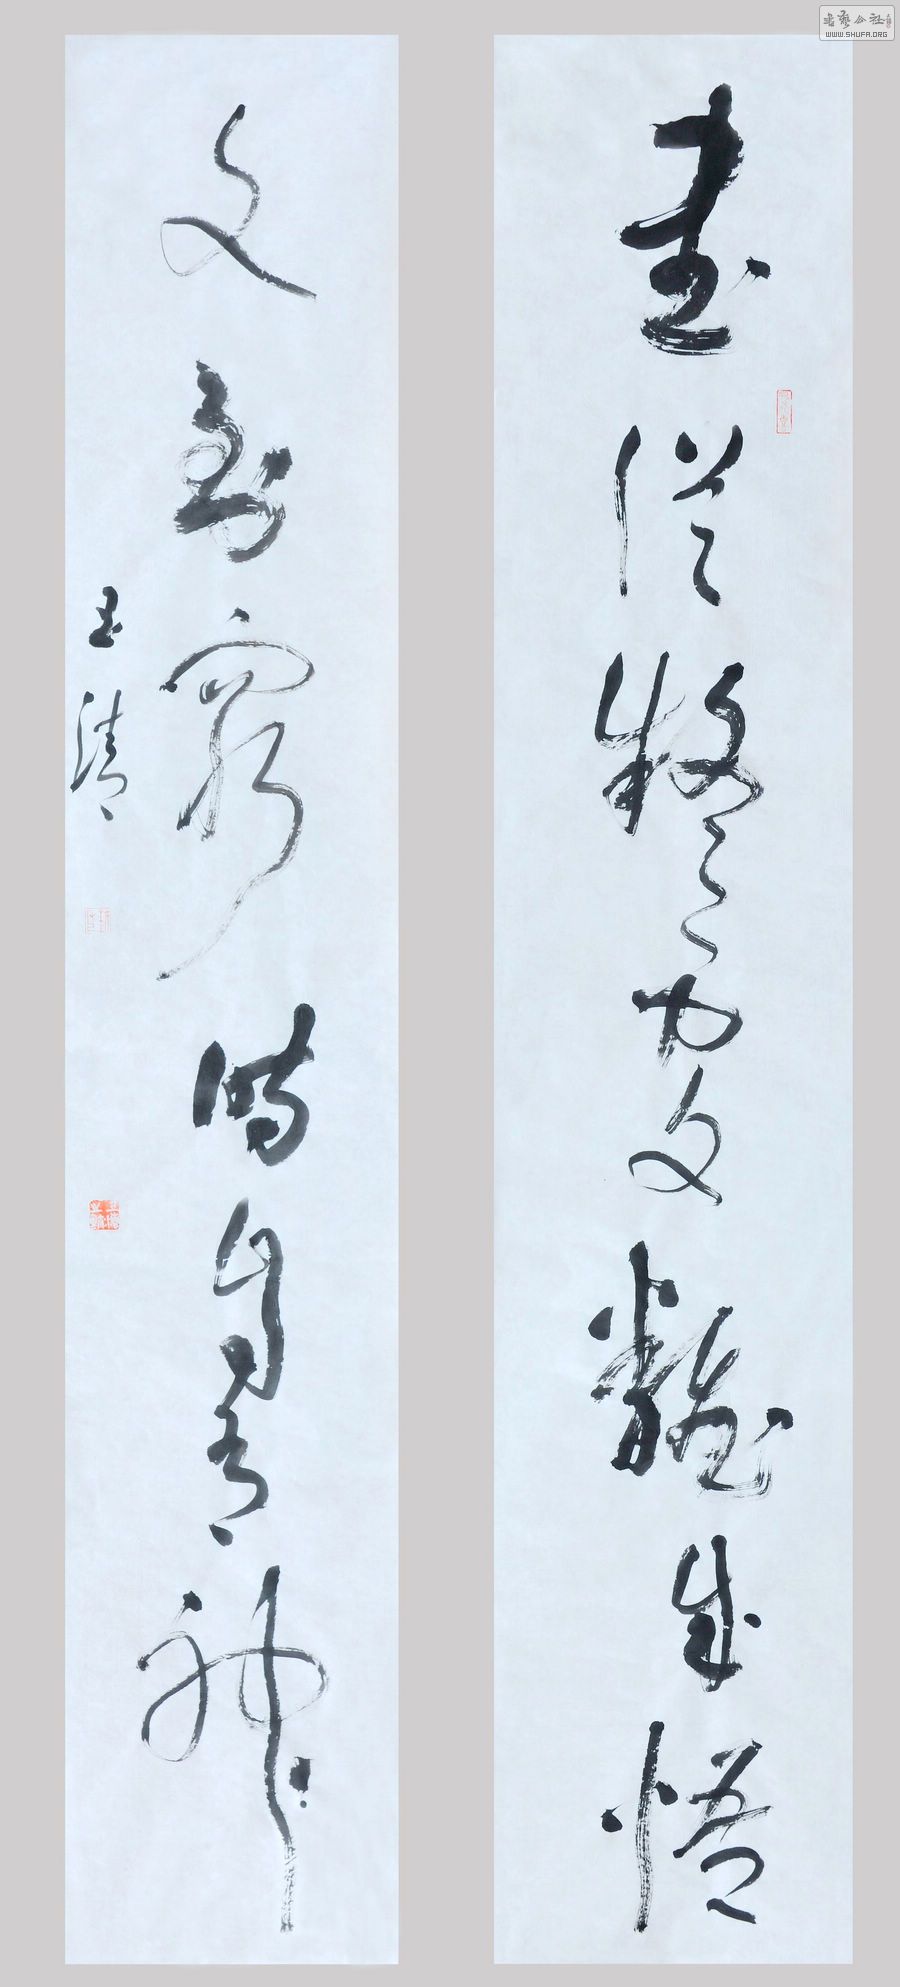 書艺公社
WWW.SHUFA.ORG
書從疑處翻成悟
文到窮時自有神
玉清